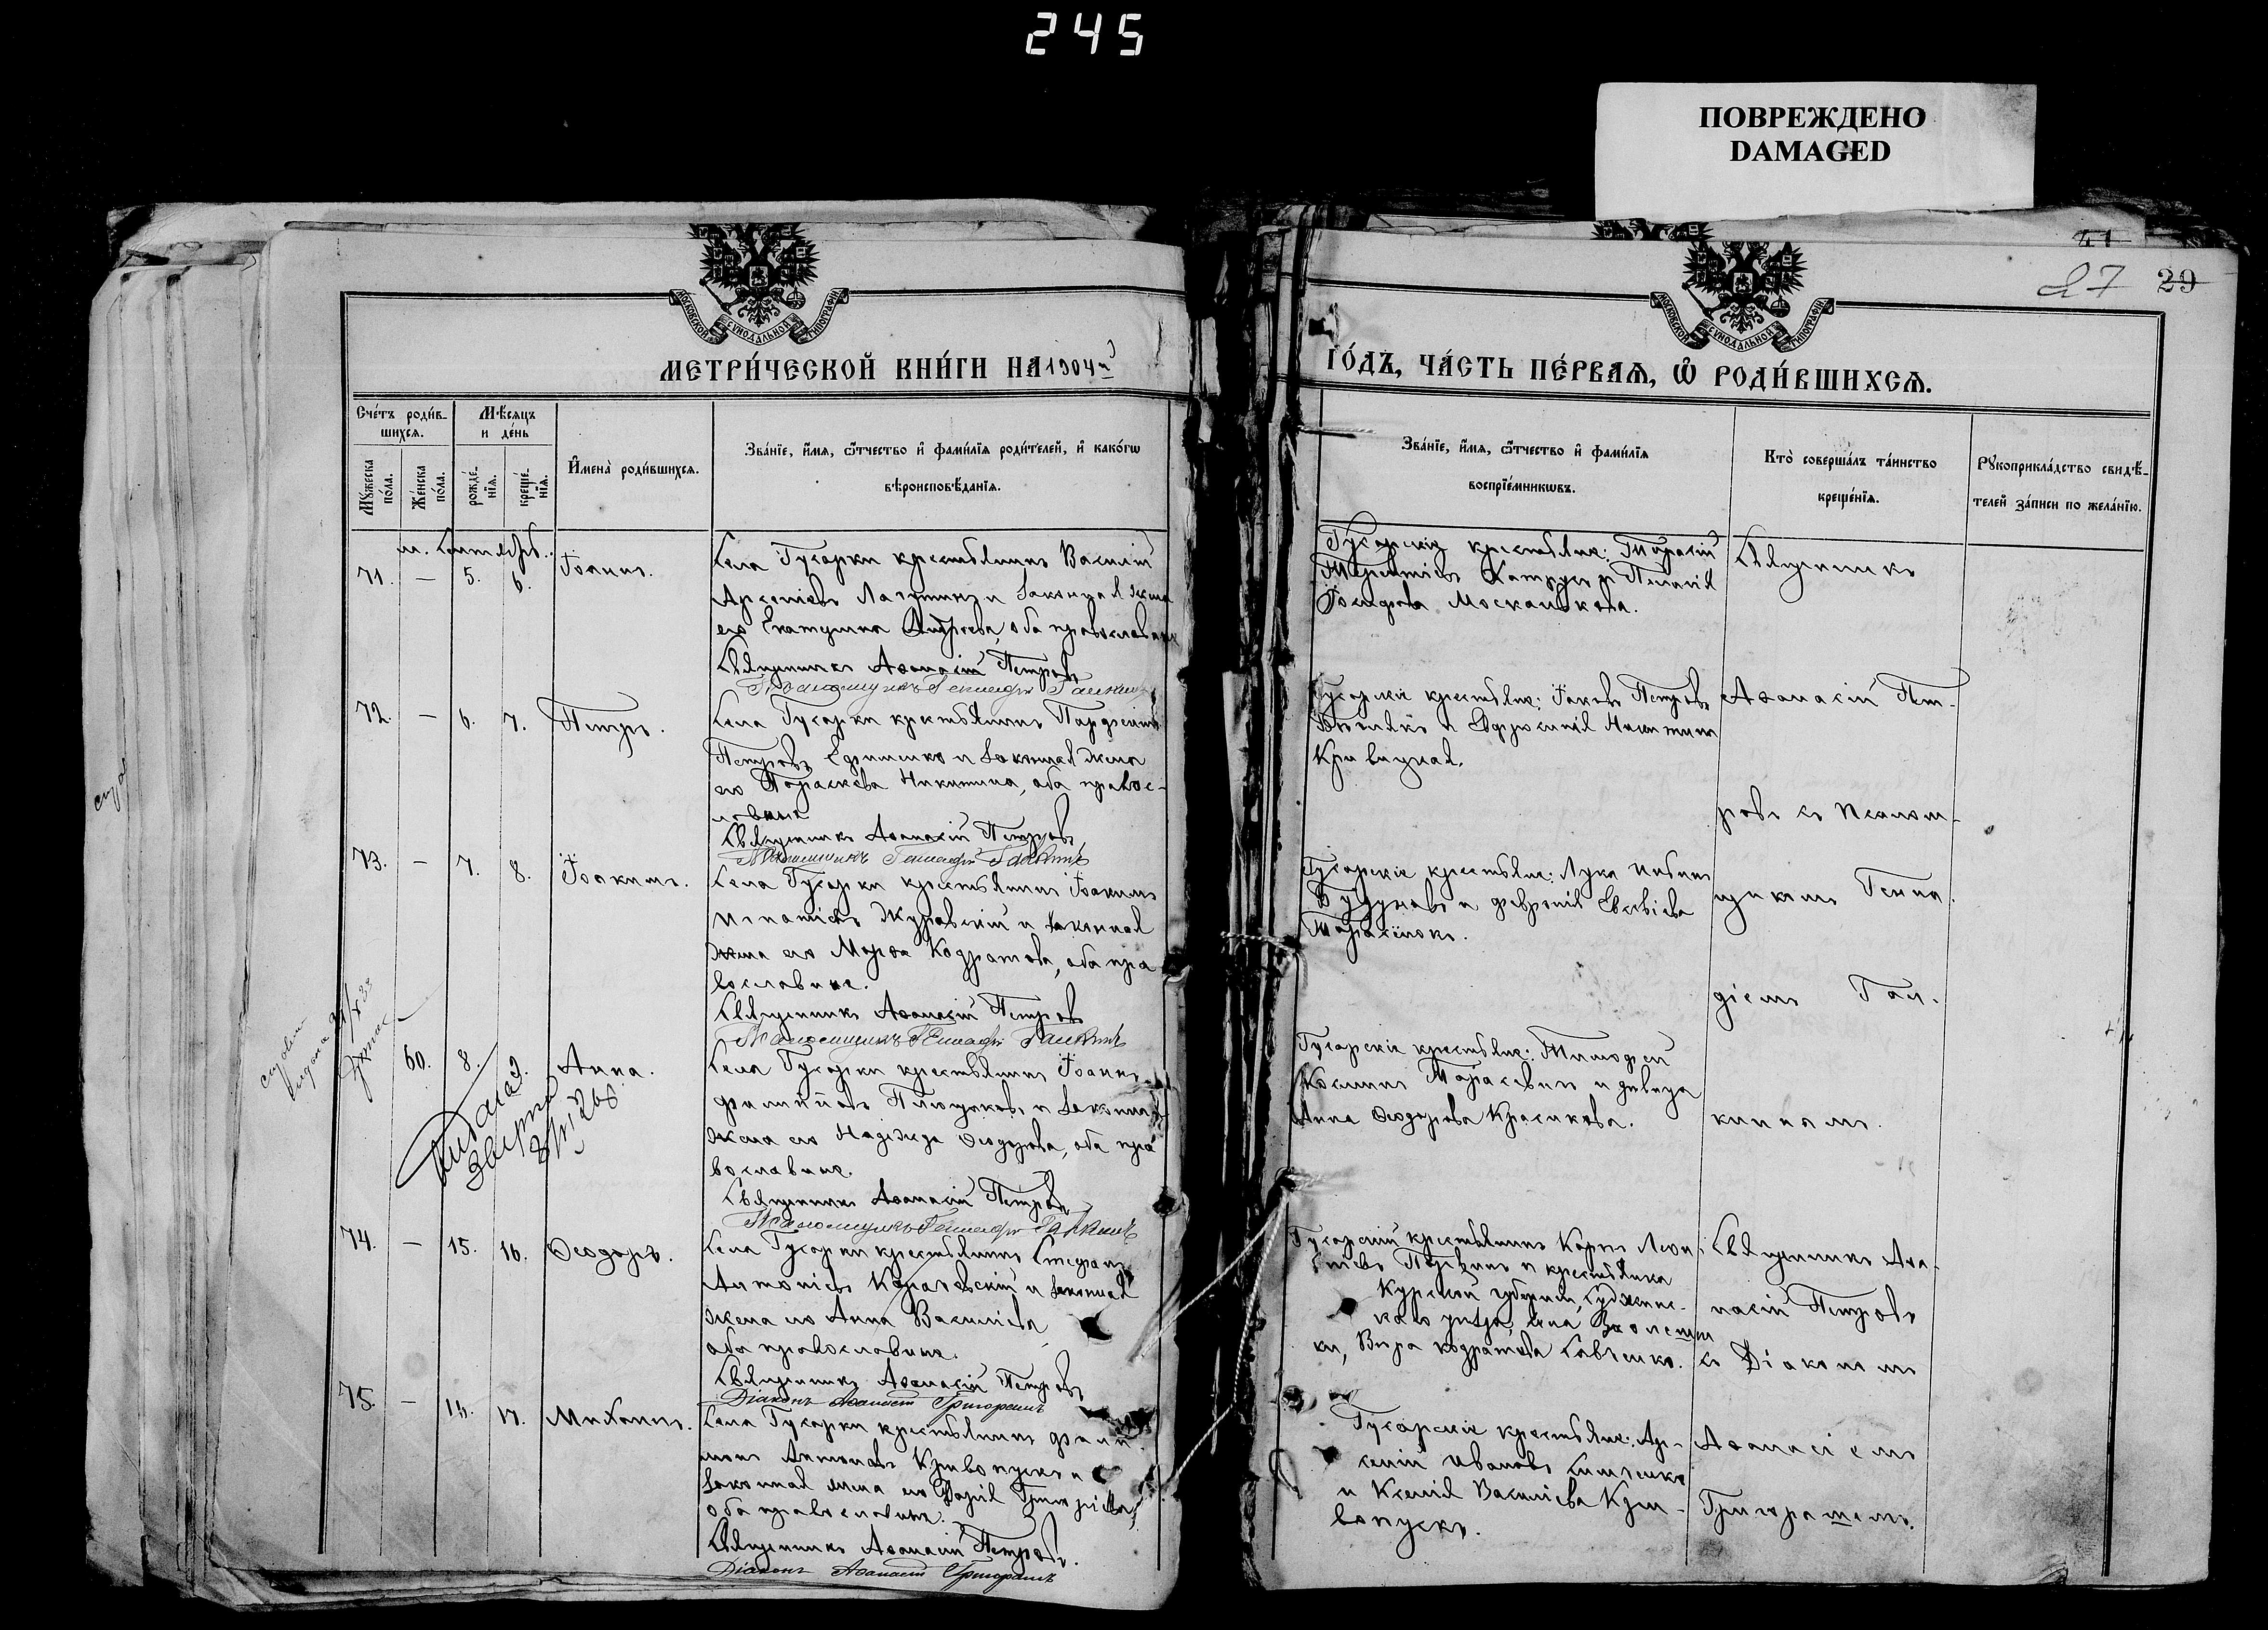 245
ПОВРЕЖДЕНО
DAMAGED
41
27 29
МОСКОВСКОЙ СѴНОДАЛЬНОЙ ТИПОГРАФІИ
МОСКОВСКОЙ СѴНОДАЛЬНОЙ ТИПОГРАФІИ
МЕТРИ́ЧЕСКОЙ КНИ́ГИ НА 1904й
ГО́ДЪ, ЧА́СТЬ ПЕ́РВАѦ, Ѡ РОДИ́ВШИХСѦ.
Сче́тъ роди́в-
шихсѧ.
Мꙋ́жеска по́ла.
Же́нска по́ла.
Мѣ́сяцъ и де́нь
рожде́-
нїѧ.
креще́-
нїѧ.
И҆мена̀ роди́вшихсѧ.
Зва́нїе, и҆́мѧ, ѻ҆́тчество и҆ фами́лїѧ роди́телей, и҆ како́гѡ
вѣроисповѣ́данїѧ.
Зва́нїе, и҆́мѧ, ѻ҆́тчество и҆ фами́лїѧ
воспрїе́мникѡвъ.
Кто̀ соверша́лъ та́инство
креще́нїѧ.
Рꙋкоприкла́дство свидѣ́-
телей за́писи по жела́нїю.
м. Сентябрь.
71. — 5. 6. Іоаннъ.
Села Гусарки крестьянинъ Василій
Арсеніевъ и законная жена
его Екатерина Андреева, оба православные
Священникъ Аѳанасій Петровъ
Псаломщикъ Геннадій Галкинъ
Гусарскіе крестьяне: Тарасій
Терентіевъ и Пелагія
Іосифова Москалькова.
Священникъ
72. — 6. 7. Петръ.
Села Гусарки крестьянинъ Парфеній
Петровъ Ефименко и законная жена
его Параскева Никитина, оба правос-
лавные
Священникъ Аѳанасій Петровъ
Псаломщикъ Геннадій Галкинъ
Гусарскіе крестьяне: Іаковъ Петровъ
и Евфросинія Никитина
Кривицкая.
Аѳанасій Пет-
ровъ съ Псалом-
73. — 7. 8. Іоакимъ.
Села Гусарки крестьянинъ Іоакимъ
Игнатіевъ Журавскій и законная
жена его Марѳа Кодратова, оба пра
вославные.
Священникъ Аѳанасій Петровъ
Псаломщикъ Геннадій Галкинъ
Гусарскіе крестьяне: Лука
и Февронія Евсевіева
щикомъ Генна-
діемъ Гал-
60. 8. 9. Анна.
Села Гусарки крестьянинъ Іоаннъ
Филипповъ и законная
жена его Надежда Ѳеодорова, оба пра
вославные.
Священникъ Аѳанасій Петровъ
Псаломщикъ Геннадій Галкинъ
Гусарскіе крестьяне: Тимофей
Косминъ Тарасевинъ и девица
Анна Ѳеодорова Красикова.
кинымъ.
74. — 15. 16. Ѳеодоръ.
Села Гусарки крестьянинъ Стефанъ
Антоніевъ и законная
жена его Анна Василіева
оба православные.
Священникъ Аѳанасій Петровъ
Діаконъ Аѳанасій Григорашъ
Гусарскій крестьянинъ Карпъ Леон-
тіевъ и крестьянка
Курской губерніи, Суджанс-
каго уѣзда, села
ки, Вѣра Кодратова Савченко.
Священникъ Аѳа-
насій Петровъ
съ Діакономъ
75. — 16. 17. Михаилъ.
Села Гусарки крестьянинъ Фили
монъ Антоновъ Кривопускъ и
законная жена его Дарія Григоріева,
оба православные.
Священникъ Аѳанасій Петровъ.
Діаконъ Аѳанасій Григорашъ
Гусарскіе крестьяне: Ар-
сеній Ивановъ
и Ксенія Василіева Кри-
вопускъ.
Аѳанасіемъ
Григорашемъ.